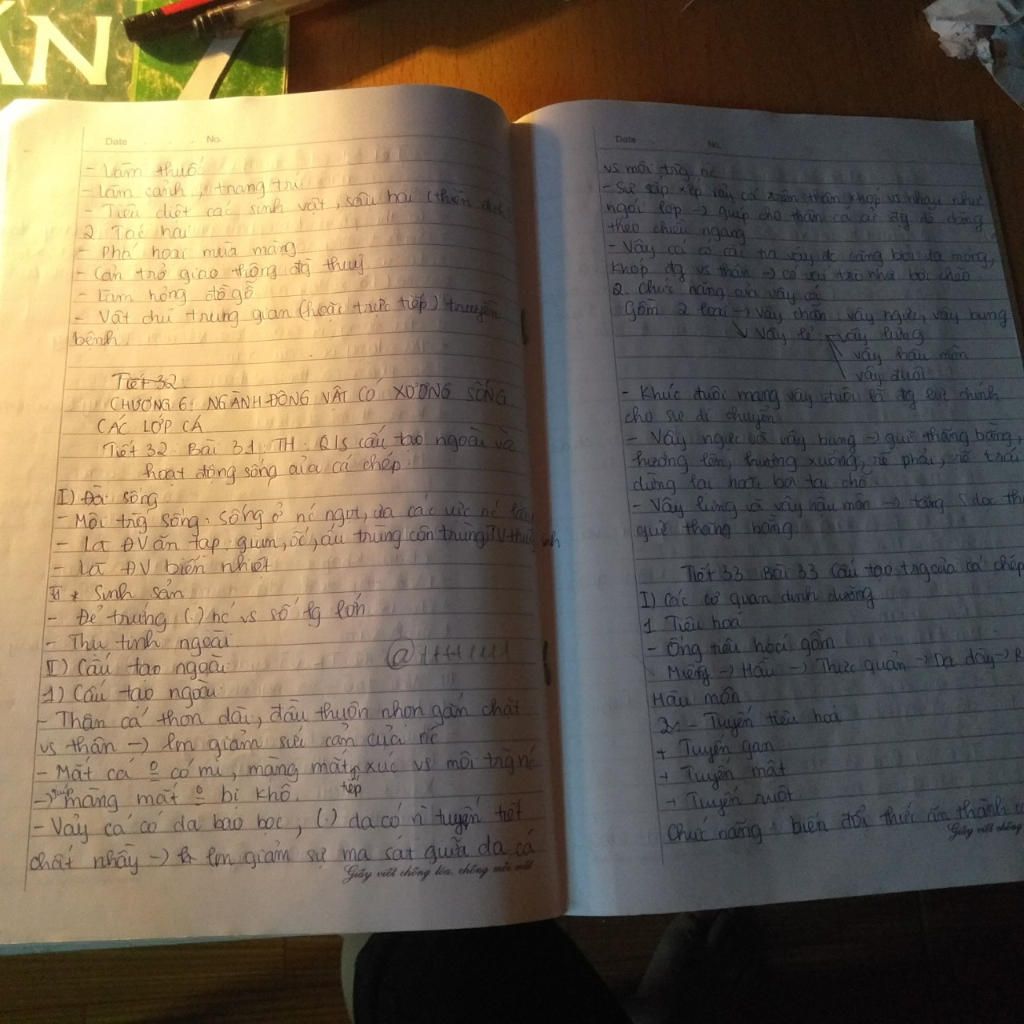 ÁN
7
Date No.
- Làm thuốc
- Làm cảnh, trang trí
- Tiêu diệt các sinh vật, sâu hại (thiên địch
2. Tác hại
- Phá hoại mùa màng
- Cản trở giao thông đg thuỷ
- Làm hỏng đồ gỗ
- Vật chủ trung gian (hoặc trực tiếp) truyền
bệnh.
Tiết 32
CHƯƠNG 6: NGÀNH ĐỘNG VẬT CÓ XƯƠNG SỐNG
CÁC LỚP CÁ
Tiết 32 Bài 31: TH: Q/S cấu tạo ngoài và
hoạt động sống của cá chép.
I) Đời sống
- Môi trg sống: sống ở nc ngọt, ưa các vực nc lặng
- Là ĐV ăn tạp: giun, ốc, ấu trùng côn trùng, TV thuỷ sinh
- Là ĐV biến nhiệt
* Sinh sản
- Đẻ trứng (.) nc vs số lg lớn
- Thụ tinh ngoài
II) Cấu tạo ngoài.
1) Cấu tạo ngoài.
- Thân cá thon dài, đầu thuôn nhọn gắn chặt
vs thân -> lm giảm sức cản của nc
- Mắt cá o có mi, màng mắt txúc vs môi trg nc
tiếp
-> giúp màng mắt o bị khô.
- Vảy cá có da bao bọc, (.) da có n tuyến tiết
chất nhầy -> lm giảm sự ma sát giữa da cá
Giấy viết chống lóa, chống mỏi mắt
Date No.
vs môi trg nc
- Sự sắp xếp vảy cá trên thân khớp vs nhau như
ngói lợp -> giúp cho thân cá cử đg dễ dàng
theo chiều ngang
- Vây cá có các tia vây đc căng bởi da mỏng,
khớp đg vs thân -> có vai trò như bơi chèo
2. Chức năng của vây cá
Gồm 2 loại -> Vây chẵn: vây ngực, vây bụng
Vây lẻ: vây lưng
vây hậu môn
vây đuôi
- Khúc đuôi mang vây đuôi là đg lực chính
cho sự di chuyển
- Vây ngực và vây bụng -> giữ thăng bằng,
hướng lên, hướng xuống, rẽ phải, rẽ trái
dừng lại hoặc bơi tại chỗ
- Vây lưng và vây hậu môn -> tăng S dọc th
giữ thăng bằng
Tiết 33 Bài 33 Cấu tạo trg của cá chép
I) Các cơ quan dinh dưỡng
1 Tiêu hoá
- Ống tiêu hoá gồm
Miệng -> Hầu -> Thực quản -> Dạ dày -> R
Hậu môn
2. - Tuyến tiêu hoá
+ Tuyến gan
+ Tuyến mật
+ Tuyến ruột
Chức năng: biến đổi thức ăn thành c
Giấy viết chống